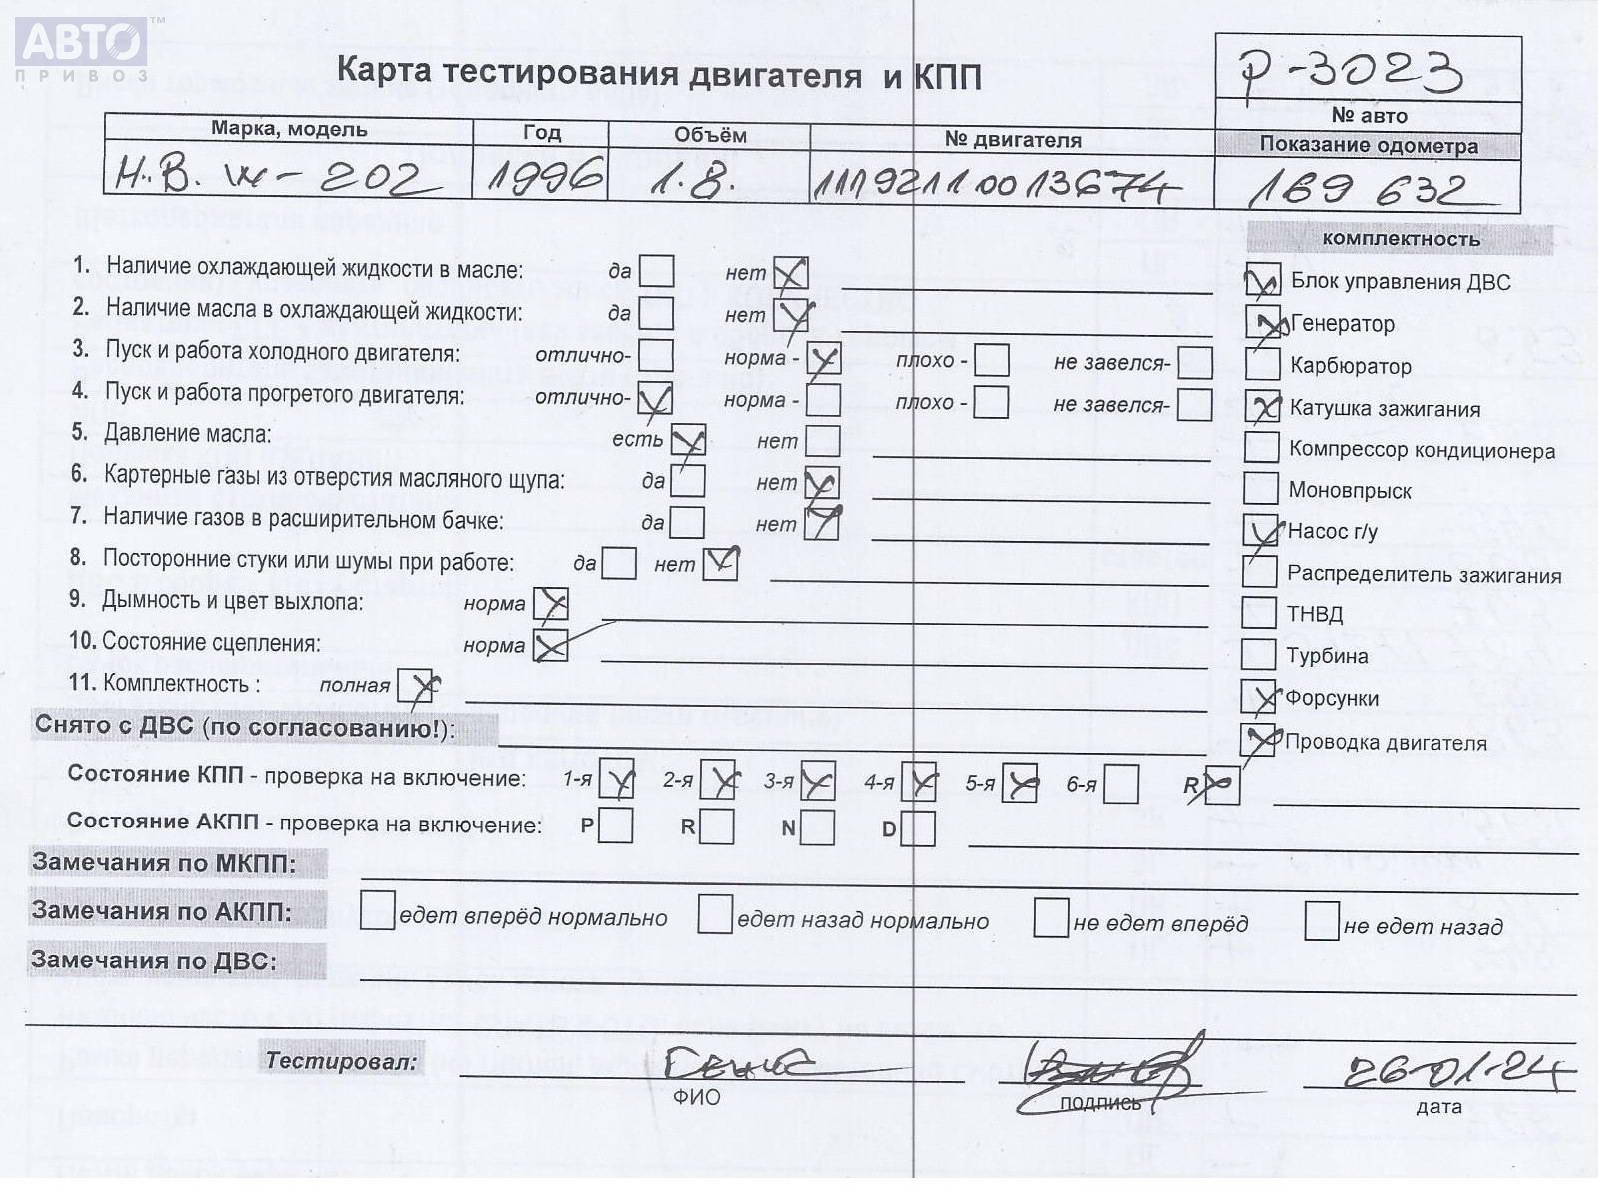 АВТО™
ПРИВОЗ
Карта тестирования двигателя и КПП
Р-3023
№ авто
Марка, модель Год Объём № двигателя Показание одометра
1996 1.8. 11192110013674 169 632
комплектность
1. Наличие охлаждающей жидкости в масле: да нет Блок управления ДВС
2. Наличие масла в охлаждающей жидкости: да нет Генератор
3. Пуск и работа холодного двигателя: отлично- норма - плохо - не завелся- Карбюратор
4. Пуск и работа прогретого двигателя: отлично- норма - плохо - не завелся- Катушка зажигания
5. Давление масла: есть нет Компрессор кондиционера
6. Картерные газы из отверстия масляного щупа: да нет Моновпрыск
7. Наличие газов в расширительном бачке: да нет Насос г/у
8. Посторонние стуки или шумы при работе: да нет Распределитель зажигания
9. Дымность и цвет выхлопа: норма ТНВД
10. Состояние сцепления: норма Турбина
11. Комплектность : полная Форсунки
Снято с ДВС (по согласованию!): Проводка двигателя
Состояние КПП - проверка на включение: 1-я 2-я 3-я 4-я 5-я 6-я R
Состояние АКПП - проверка на включение: P R N D
Замечания по МКПП:
Замечания по АКПП: едет вперёд нормально едет назад нормально не едет вперёд не едет назад
Замечания по ДВС:
Тестировал: Гена 26-01-24
ФИО подпись дата